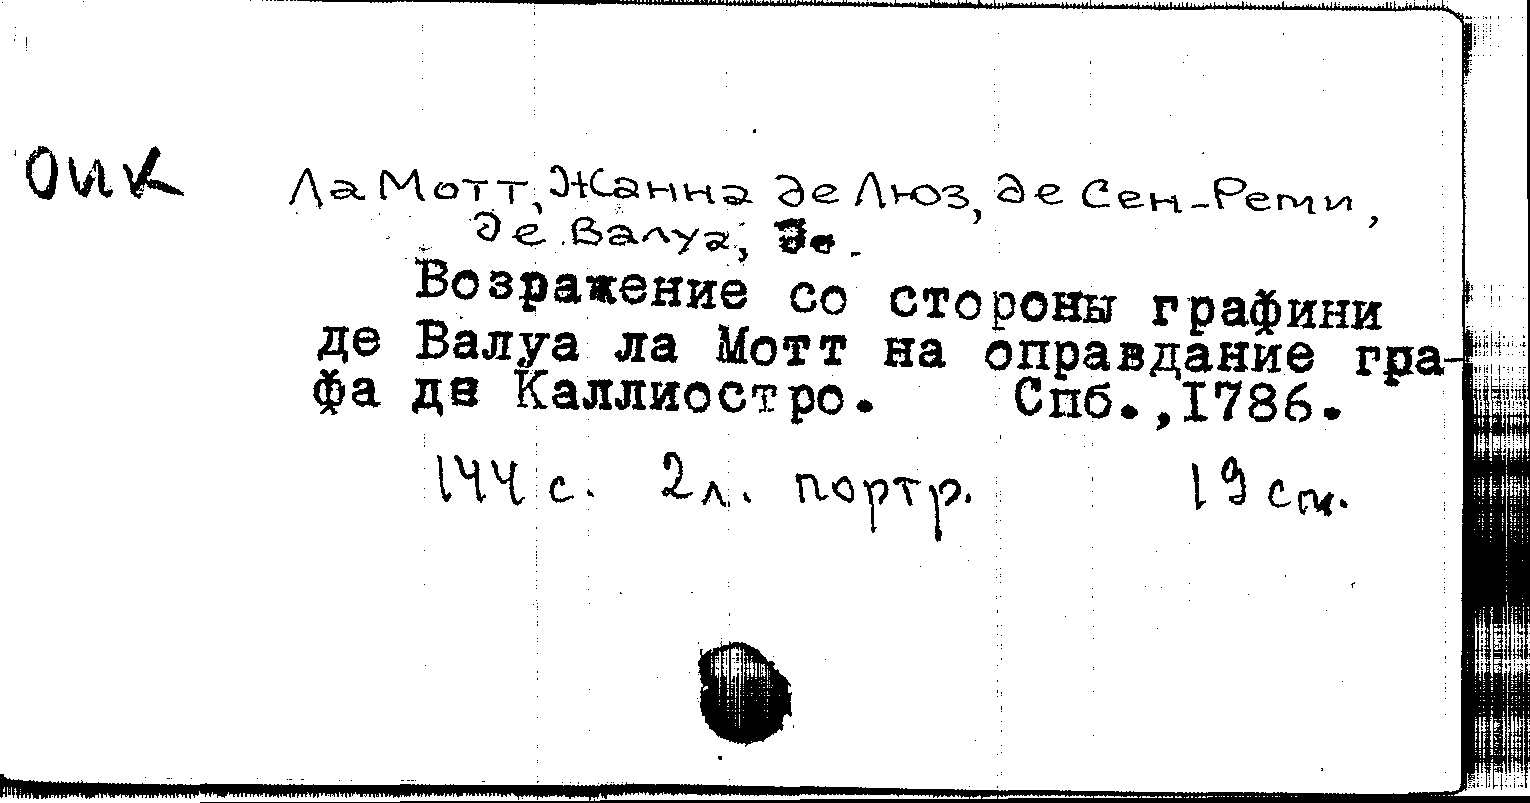 ОИК
Ла Мотт, Жанна де Люз, де Сен-Реми,
де Валуа, де.
Возражение со стороны графини
де Валуа ла Мотт на оправдание гра-
фа де Каллиостро. Спб.,1786.
144 с. 2 л. портр. 19 см.